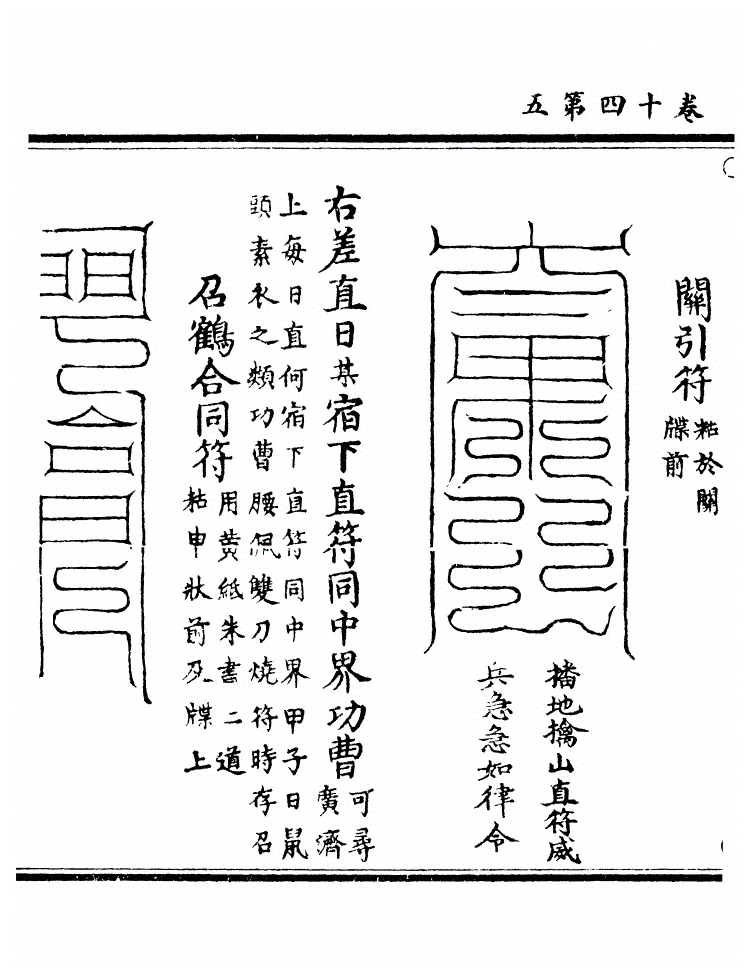 卷十四第五
關引符
粘於關
牒前
播地擒山直符威
兵急急如律令
右差直日某宿下直符同中界功曹
可尋
廣濟
上每日直何宿下直符同中界甲子日鼠
頭素衣之類功曹腰佩雙刀燒符時存召
召鶴合同符
用黄紙朱書二道
粘申狀前及牒上